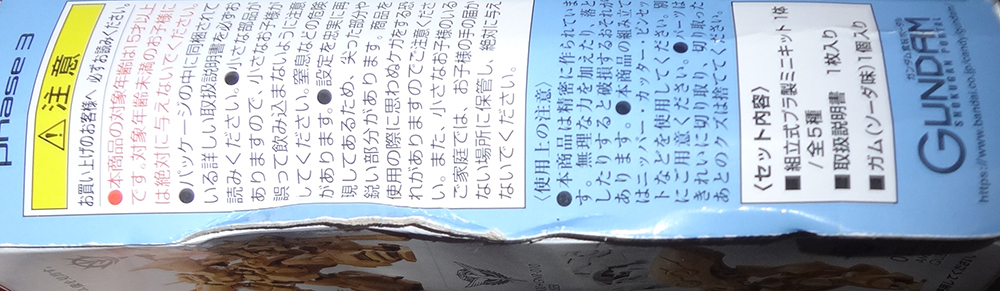 phase 3
注意
お買い上げのお客様へ 必ずお読みください。
●本商品の対象年齢は15才以上
です。対象年齢未満のお子様に
は絶対に与えないでください。
●パッケージの中に同梱されて
いる詳しい取扱説明書を必ずお
読みください。●小さな部品が
ありますので、小さなお子様が
誤って飲み込まないように注意
してください。窒息などの危険
があります。●設定を忠実に再
現してあるため、尖った部分や
鋭い部分があります。商品を
使用の際に思わぬケガをする恐
れがありますのでご注意くださ
い。また、小さなお子様のいる
ご家庭では、お子様の手の届か
ない場所に保管し、絶対に与え
ないでください。
〈使用上の注意〉
●本商品は精密に作られていま
す。無理な力を加えたり、落と
したりすると破損するおそれが
あります。●本商品の組み立て
はニッパー・カッター・ピンセッ
トなどを使用してください。別
にご用意ください。●パーツは
きれいに切り取り、切り取った
あとのクズは捨ててください。
〈セット内容〉
■組立式プラ製ミニキット1体
/全5種
■取扱説明書 1枚入り
■ガム(ソーダ味)1個入り
ガンダム食玩ポータル
GUNDAM
SHOKUGAN PORTAL
https://www.bandai.co.jp/candy/gundam/